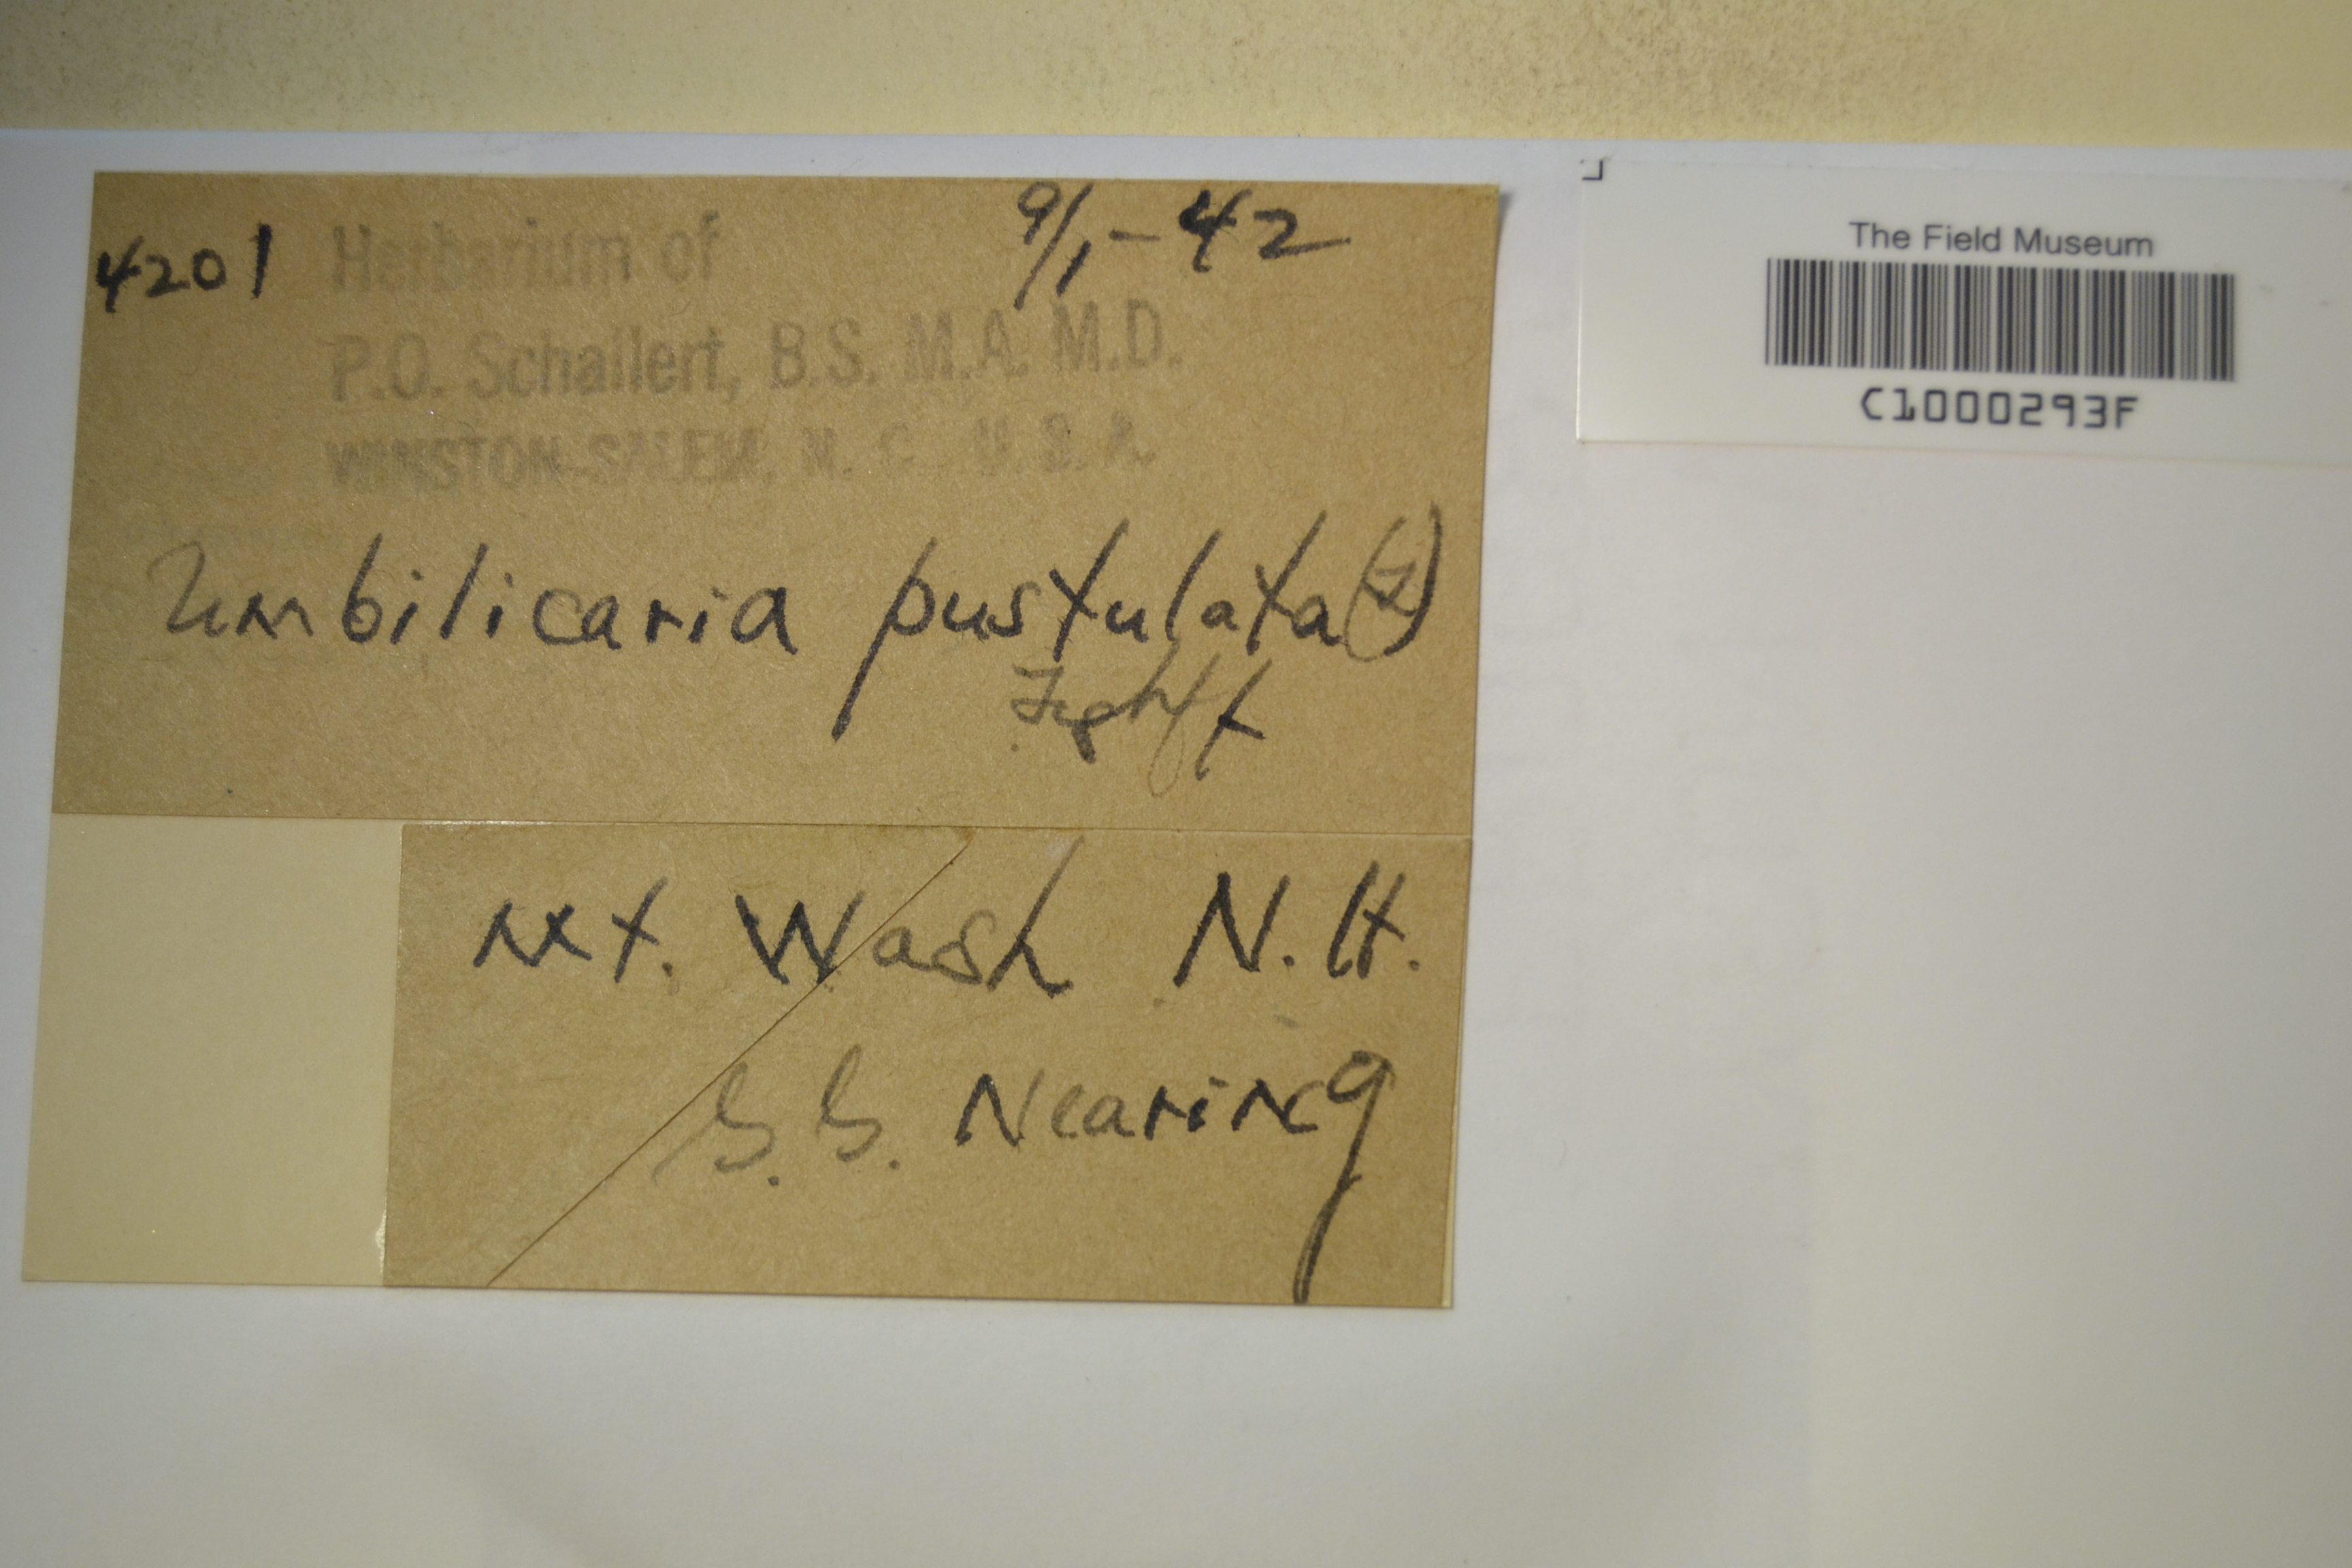 4201
9/1-42
Herbarium of
P.O. Schallert, B.S. M.A. M.D.
WINSTON-SALEM, N. C. U. S. A.
Umbilicaria pustulata (L)
Hofft
Mt. Wash N.H.
G.G. Nearing
The Field Museum
C1000293F